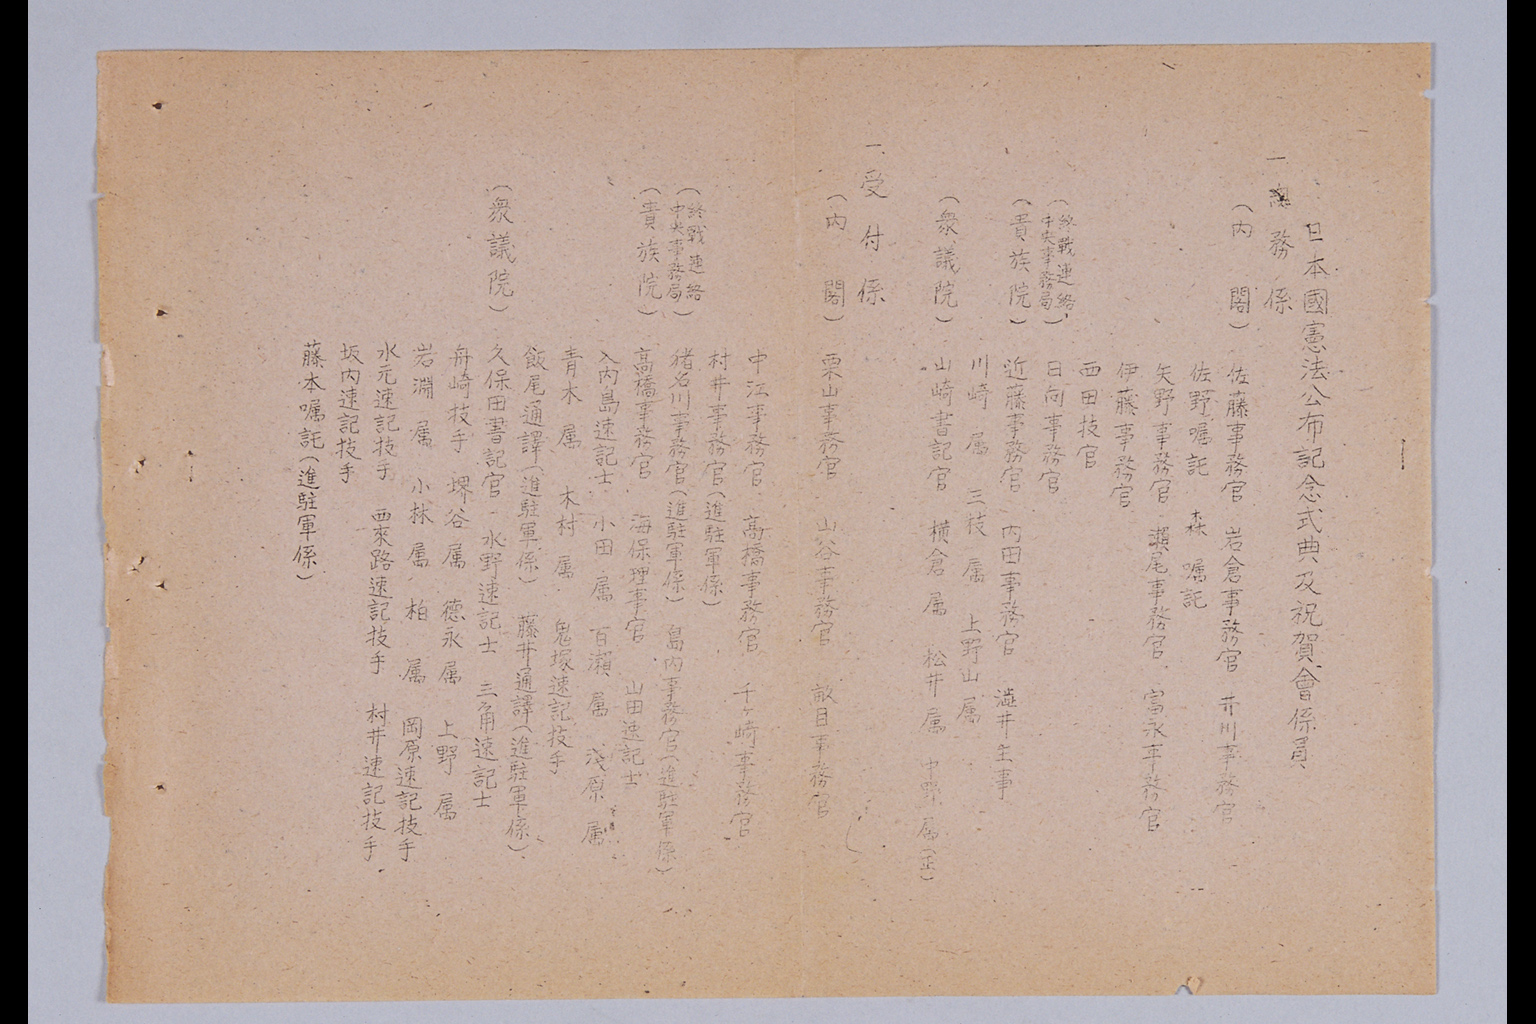 日本國憲法公布記念式典及祝賀會係員
一 總務係
(内閣) 佐藤事務官 岩倉事務官 井川事務官
佐野嘱託 森嘱託
矢野事務官 瀬尾事務官 富永事務官
伊藤事務官
西田技官
(終戰連絡中央事務局) 日向事務官
(貴族院) 近藤事務官 内田事務官 澁井主事
川崎属 三枝属 上野山属
(衆議院) 山崎書記官 横倉属 松井属 中野属(正)
一 受付係
(内閣) 栗山事務官 山谷事務官 敵目事務官
中江事務官 高橋事務官 千ヶ崎事務官
村井事務官(進駐軍係)
(終戰連絡中央事務局) 猪名川事務官(進駐軍係) 島内事務官(進駐軍係)
(貴族院) 高橋事務官 海保理事官 山田速記士
入内島速記士 小田属 百瀬属 淺原属
青木属 木村属 鬼塚速記技手
飯尾通譯(進駐軍係) 藤井通譯(進駐軍係)
(衆議院) 久保田書記官 水野速記士 三角速記士
舟崎技手 堺谷属 德永属 上野属
岩淵属 小林属 柏属 岡原速記技手
水元速記技手 西來路速記技手 村井速記技手
坂内速記技手
藤本嘱託(進駐軍係)